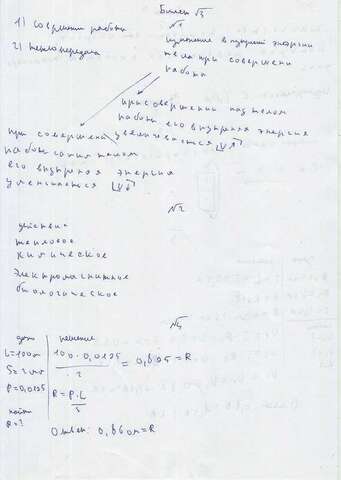 Билет √3
√1
1) Совершил работы
2) теплопередача
изменение внутрений энергии
тела при совершени
работы
при совершении над телом
работы его внутреняя энергия
увеличивается [U↑]
при совершени
работы самим телом
его внутреняя энергия
уменшается [U↓]
√2
действия
тепловое
химическое
электромагнитное
биологическое
√4
дано
решение
L=100м
S=2мм
P=0,0175
найти
R=?
100·0,0175 / 2 = 0,875=R
R=P·L / S
Ответ: 0,86Ом=R